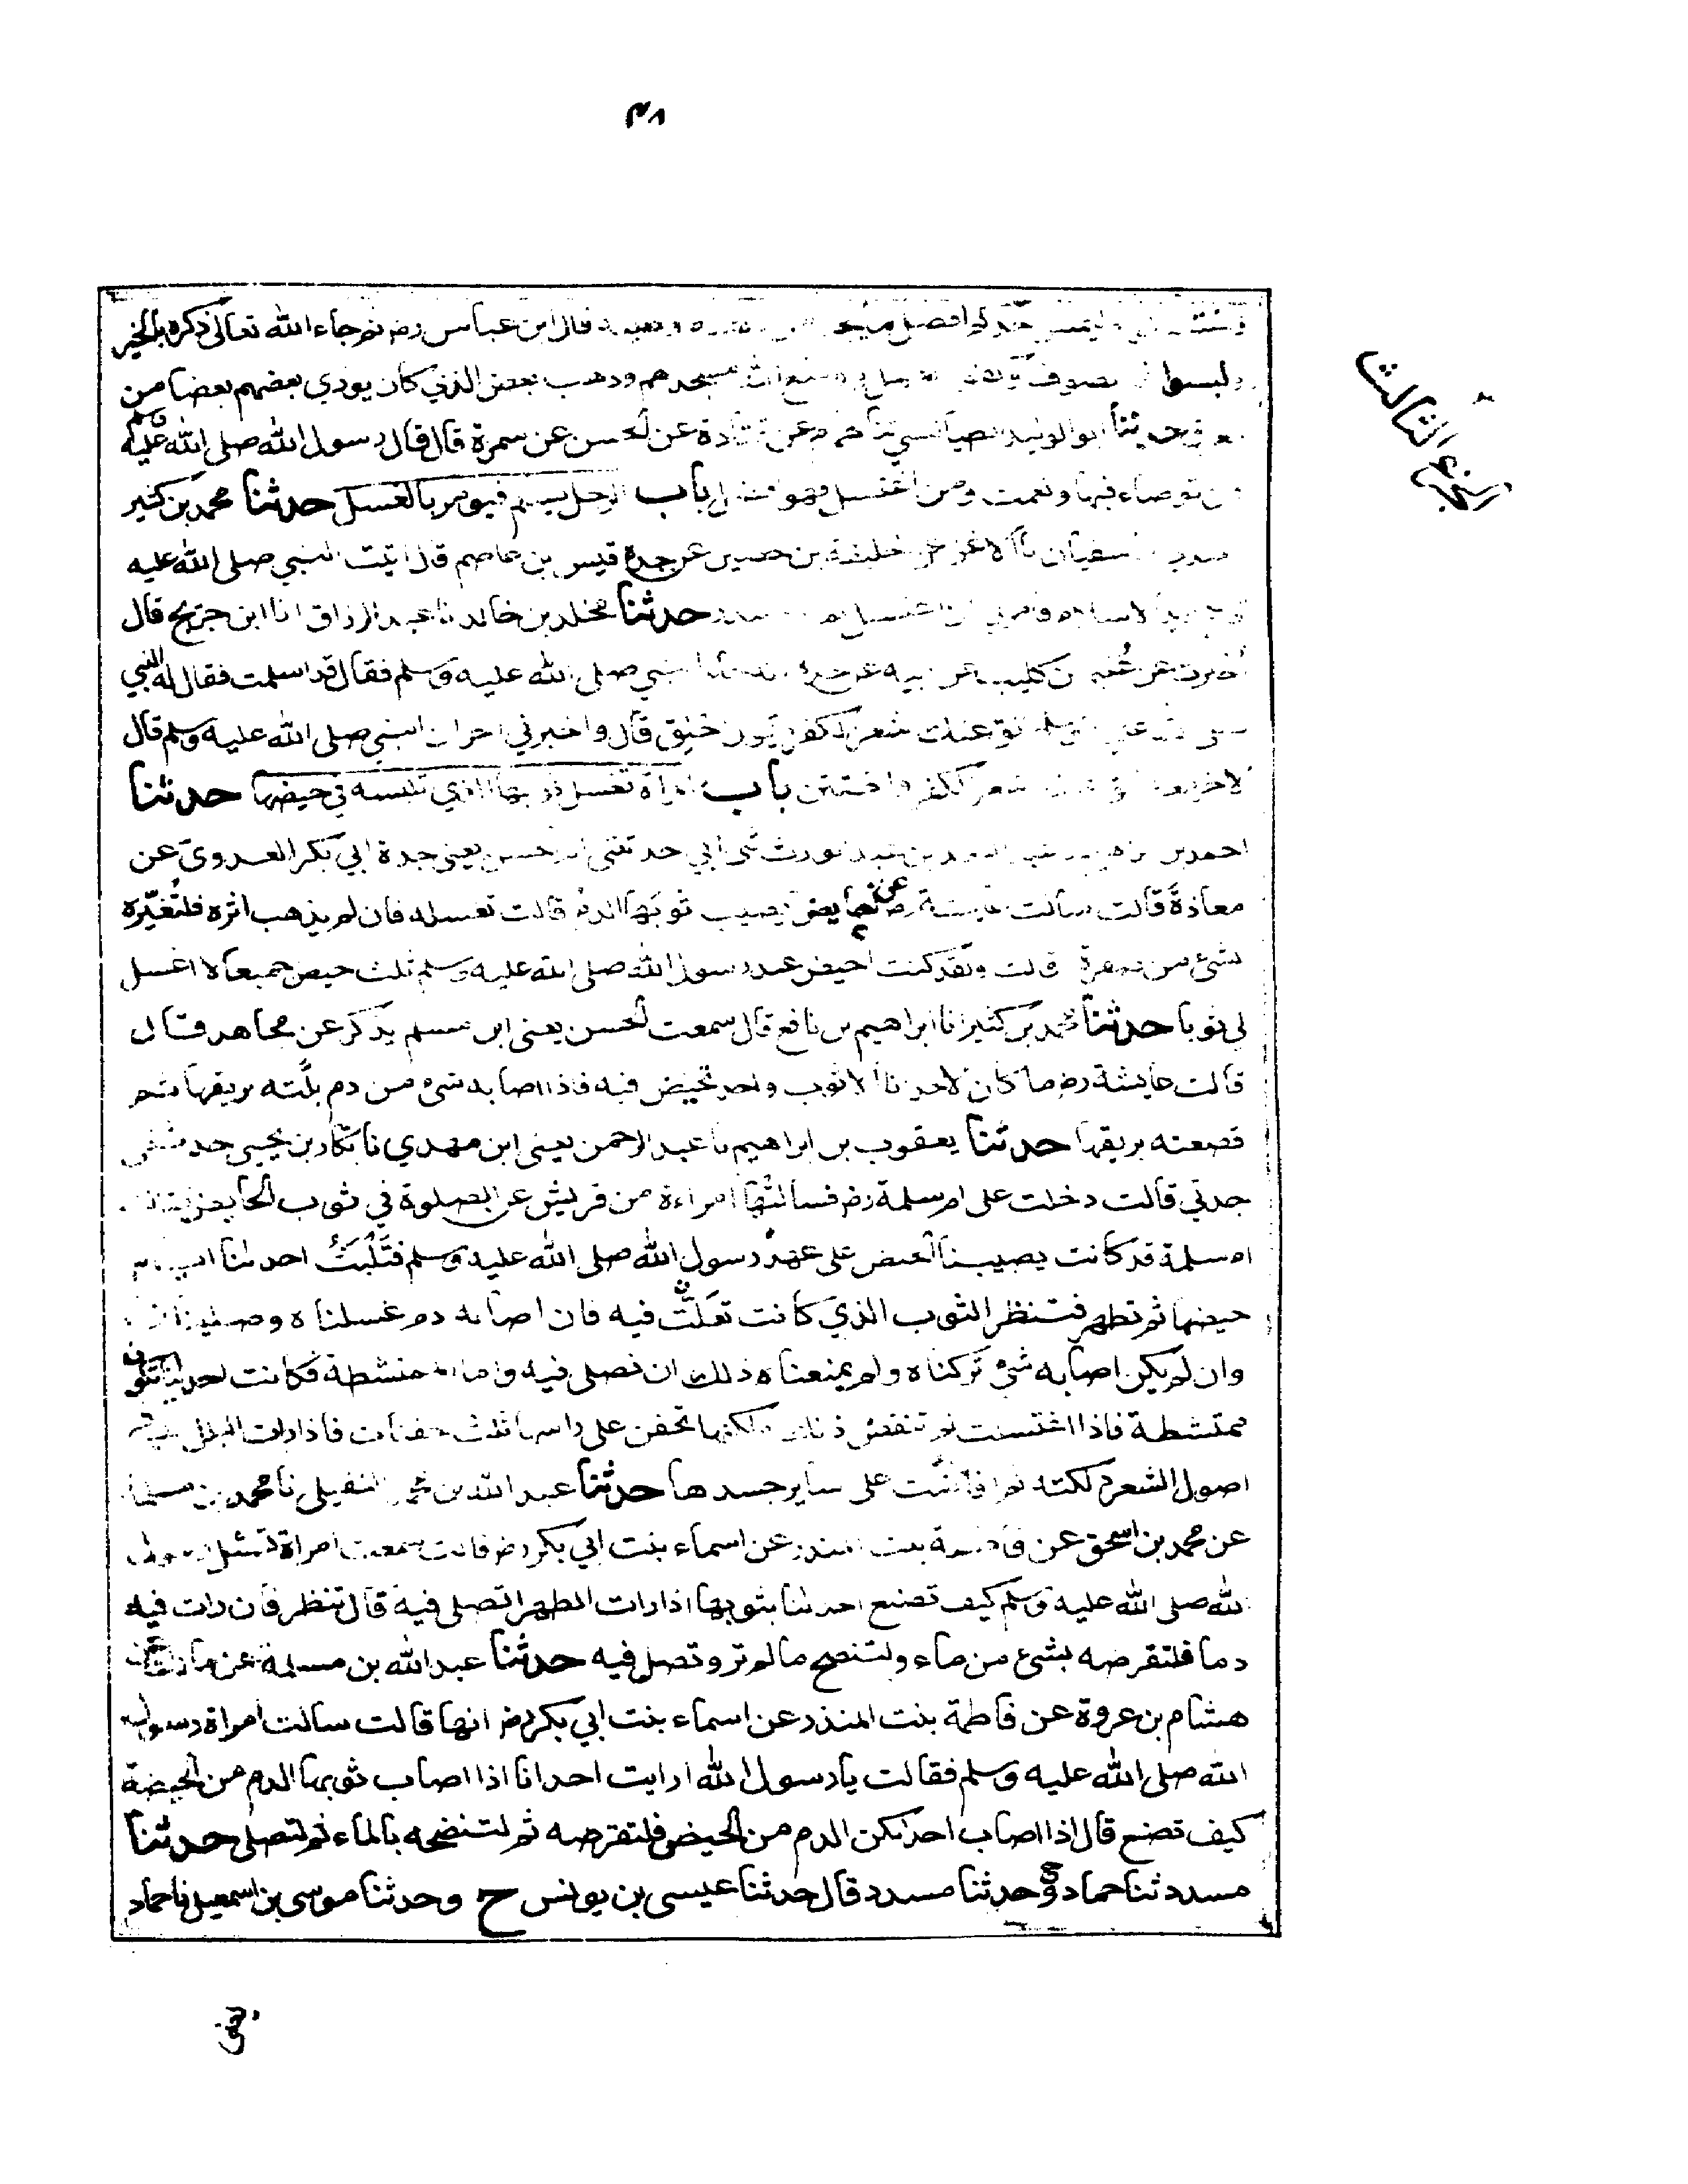 ٣٨
وليمس احدكم افضل ما يجد من دهنه وطيبه قال ابن عباس رضـ ثم جاء الله تعالى ذكره بالخير
ولبسوا غير الصوف مسجدهم وذهب بعض الذي كان يوذي بعضهم بعضا من
العرق حدثنا ابو الوليد الطيالسي نا همام عن قتادة عن الحسن عن سمرة قال قال رسول الله صلى الله عليه وسلم
من توضاء فبها ونعمت ومن اغتسل فهو افضل باب الرجل يسلم فيومر بالغسل حدثنا محمد بن كثير
سفيان نا الاغر عن خليفة بن حصين عن جده قيس بن عاصم قال اتيت النبي صلى الله عليه
اريد الاسلام فامرني ان اغتسل حدثنا مخلد بن خالد نا عبد الرزاق انا ابن جريج قال
اخبرت عن عثيم بن كليب عن ابيه عن جده النبي صلى الله عليه وسلم فقال قد اسلمت فقال له النبي
صلى الله عليه وسلم الق عنك شعر الكفر يقول احلق قال واخبرني اخر ان النبي صلى الله عليه وسلم قال
لاخر معه الق عنك شعر الكفر واختتن باب المراة تغسل ثوبها الذي تلبسه في حيضها حدثنا
احمد بن ابراهيم نا عبد الصمد بن عبد الوارث ثنى ابي حدثتنى ام الحسن يعنى جدة ابي بكر العدوى عن
معاذة قالت سالت عايشة رضـ عن الحايض يصيب ثوبها الدم قالت تغسله فان لم يذهب اثره فلتغيره
بشئ من صفرة قالت ولقد كنت احيض عند رسول الله صلى الله عليه وسلم ثلث حيض جميعا لا اغسل
لي ثوبا حدثنا محمد بن كثير انا ابراهيم بن نافع قال سمعت الحسن يعنى ابن مسلم يذكر عن مجاهد قال
قالت عايشة رضـ ما كان لاحدانا الا ثوب واحد تحيض فيه فاذا اصابه شئ من دم بلته بريقها ثم
قصعته بريقها حدثنا يعقوب بن ابراهيم نا عبد الرحمن يعنى ابن مهدي نا بكار بن يحيى حدثتنى
جدتي قالت دخلت على ام سلمة رضـ فسالتها امراءة من قريش عن الصلوة في ثوب الحايض
ام سلمة قد كانت يصيبنا الحيض على عهد رسول الله صلى الله عليه وسلم فتلبث احدىنا ايام
حيضها ثم تطهر فتنظر الثوب الذي كانت تقلت فيه فان اصابه دم غسلناه وصلينا فيه
وان لم يكن اصابه شئ تركناه ولم يمنعناه ذلك ان نصلى فيه واما الممتشطة فكانت احدىنا تكون
ممتشطة فاذا اغتسلت لم تنقض ذلك ولكنها تحفن على راسها ثلث حفنات فاذا رات البلل في
اصول الشعر دلكته ثم افاضت على ساير جسدها حدثنا عبد الله بن محمد النفيلي نا محمد بن سلمة
عن محمد بن اسحق عن فاطمة بنت المنذر عن اسماء بنت ابي بكر رضـ قالت سمعت امراة تسئل رسول
الله صلى الله عليه وسلم كيف تصنع احدىنا بثوبها اذا رات الطهر اتصلى فيه قال تنظر فان رات فيه
دما فلتقرصه بشئ من ماء ولتنضح ما لم تر وتصل فيه حدثنا عبد الله بن مسلمة عن مالك عن
هشام بن عروة عن فاطمة بنت المنذر عن اسماء بنت ابي بكر رضـ انها قالت سالت امراة رسول
الله صلى الله عليه وسلم فقالت يا رسول الله ارايت احدانا اذا اصاب ثوبها الدم من الحيضة
كيف تصنع قال اذا اصاب احداكن الدم من الحيض فلتقرصه ثم لتنضحه بالماء ثم لتصلى حدثنا
مسدد ثنا حماد ح وحدثنا مسدد قال حدثنا عيسى بن يونس ح وحدثنا موسى بن اسمعيل نا حماد
الجزء الثالث